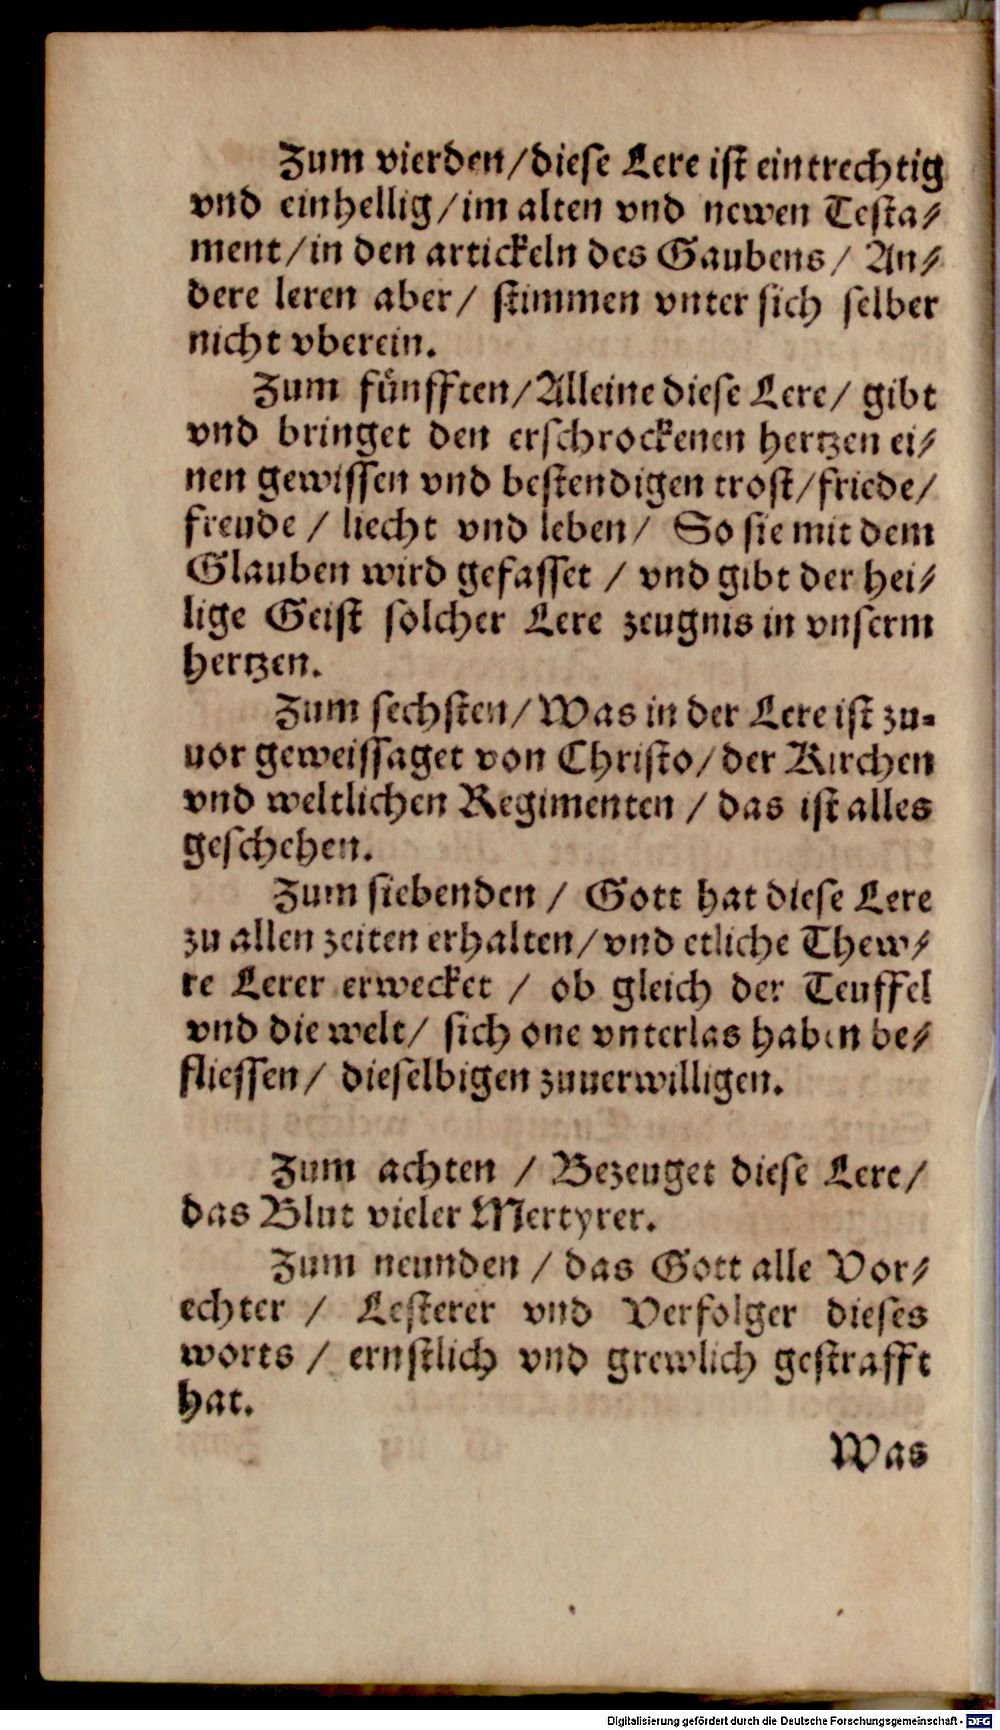 Zum vierden/diese Lere ist eintrechtig
vnd einhellig/im alten vnd newen Testa⸗
ment/in den artickeln des Gaubens/ An⸗
dere leren aber/ stimmen vnter sich selber
nicht vberein.
Zum fünfften/Alleine diese Lere/ gibt
vnd bringet den erschrockenen hertzen ei⸗
nen gewissen vnd bestendigen trost/friede/
freude / liecht vnd leben/ So sie mit dem
Glauben wird gefasset / vnd gibt der hei⸗
lige Geist solcher Lere zeugnis in vnserm
hertzen.
Zum sechsten/Was in der Lere ist zu⸗
uor geweissaget von Christo/der Kirchen
vnd weltlichen Regimenten / das ist alles
geschehen.
Zum siebenden / Gott hat diese Lere
zu allen zeiten erhalten/vnd etliche Thew⸗
re Lerer erwecket / ob gleich der Teuffel
vnd die welt/ sich one vnterlas haben be⸗
fliessen/ dieselbigen zuuerwilligen.
Zum achten / Bezeuget diese Lere/
das Blut vieler Mertyrer.
Zum neunden / das Gott alle Vor⸗
echter / Lesterer vnd Verfolger dieses
worts / ernstlich vnd grewlich gestrafft
hat.
Was
Digitalisierung gefördert durch die Deutsche Forschungsgemeinschaft - DFG